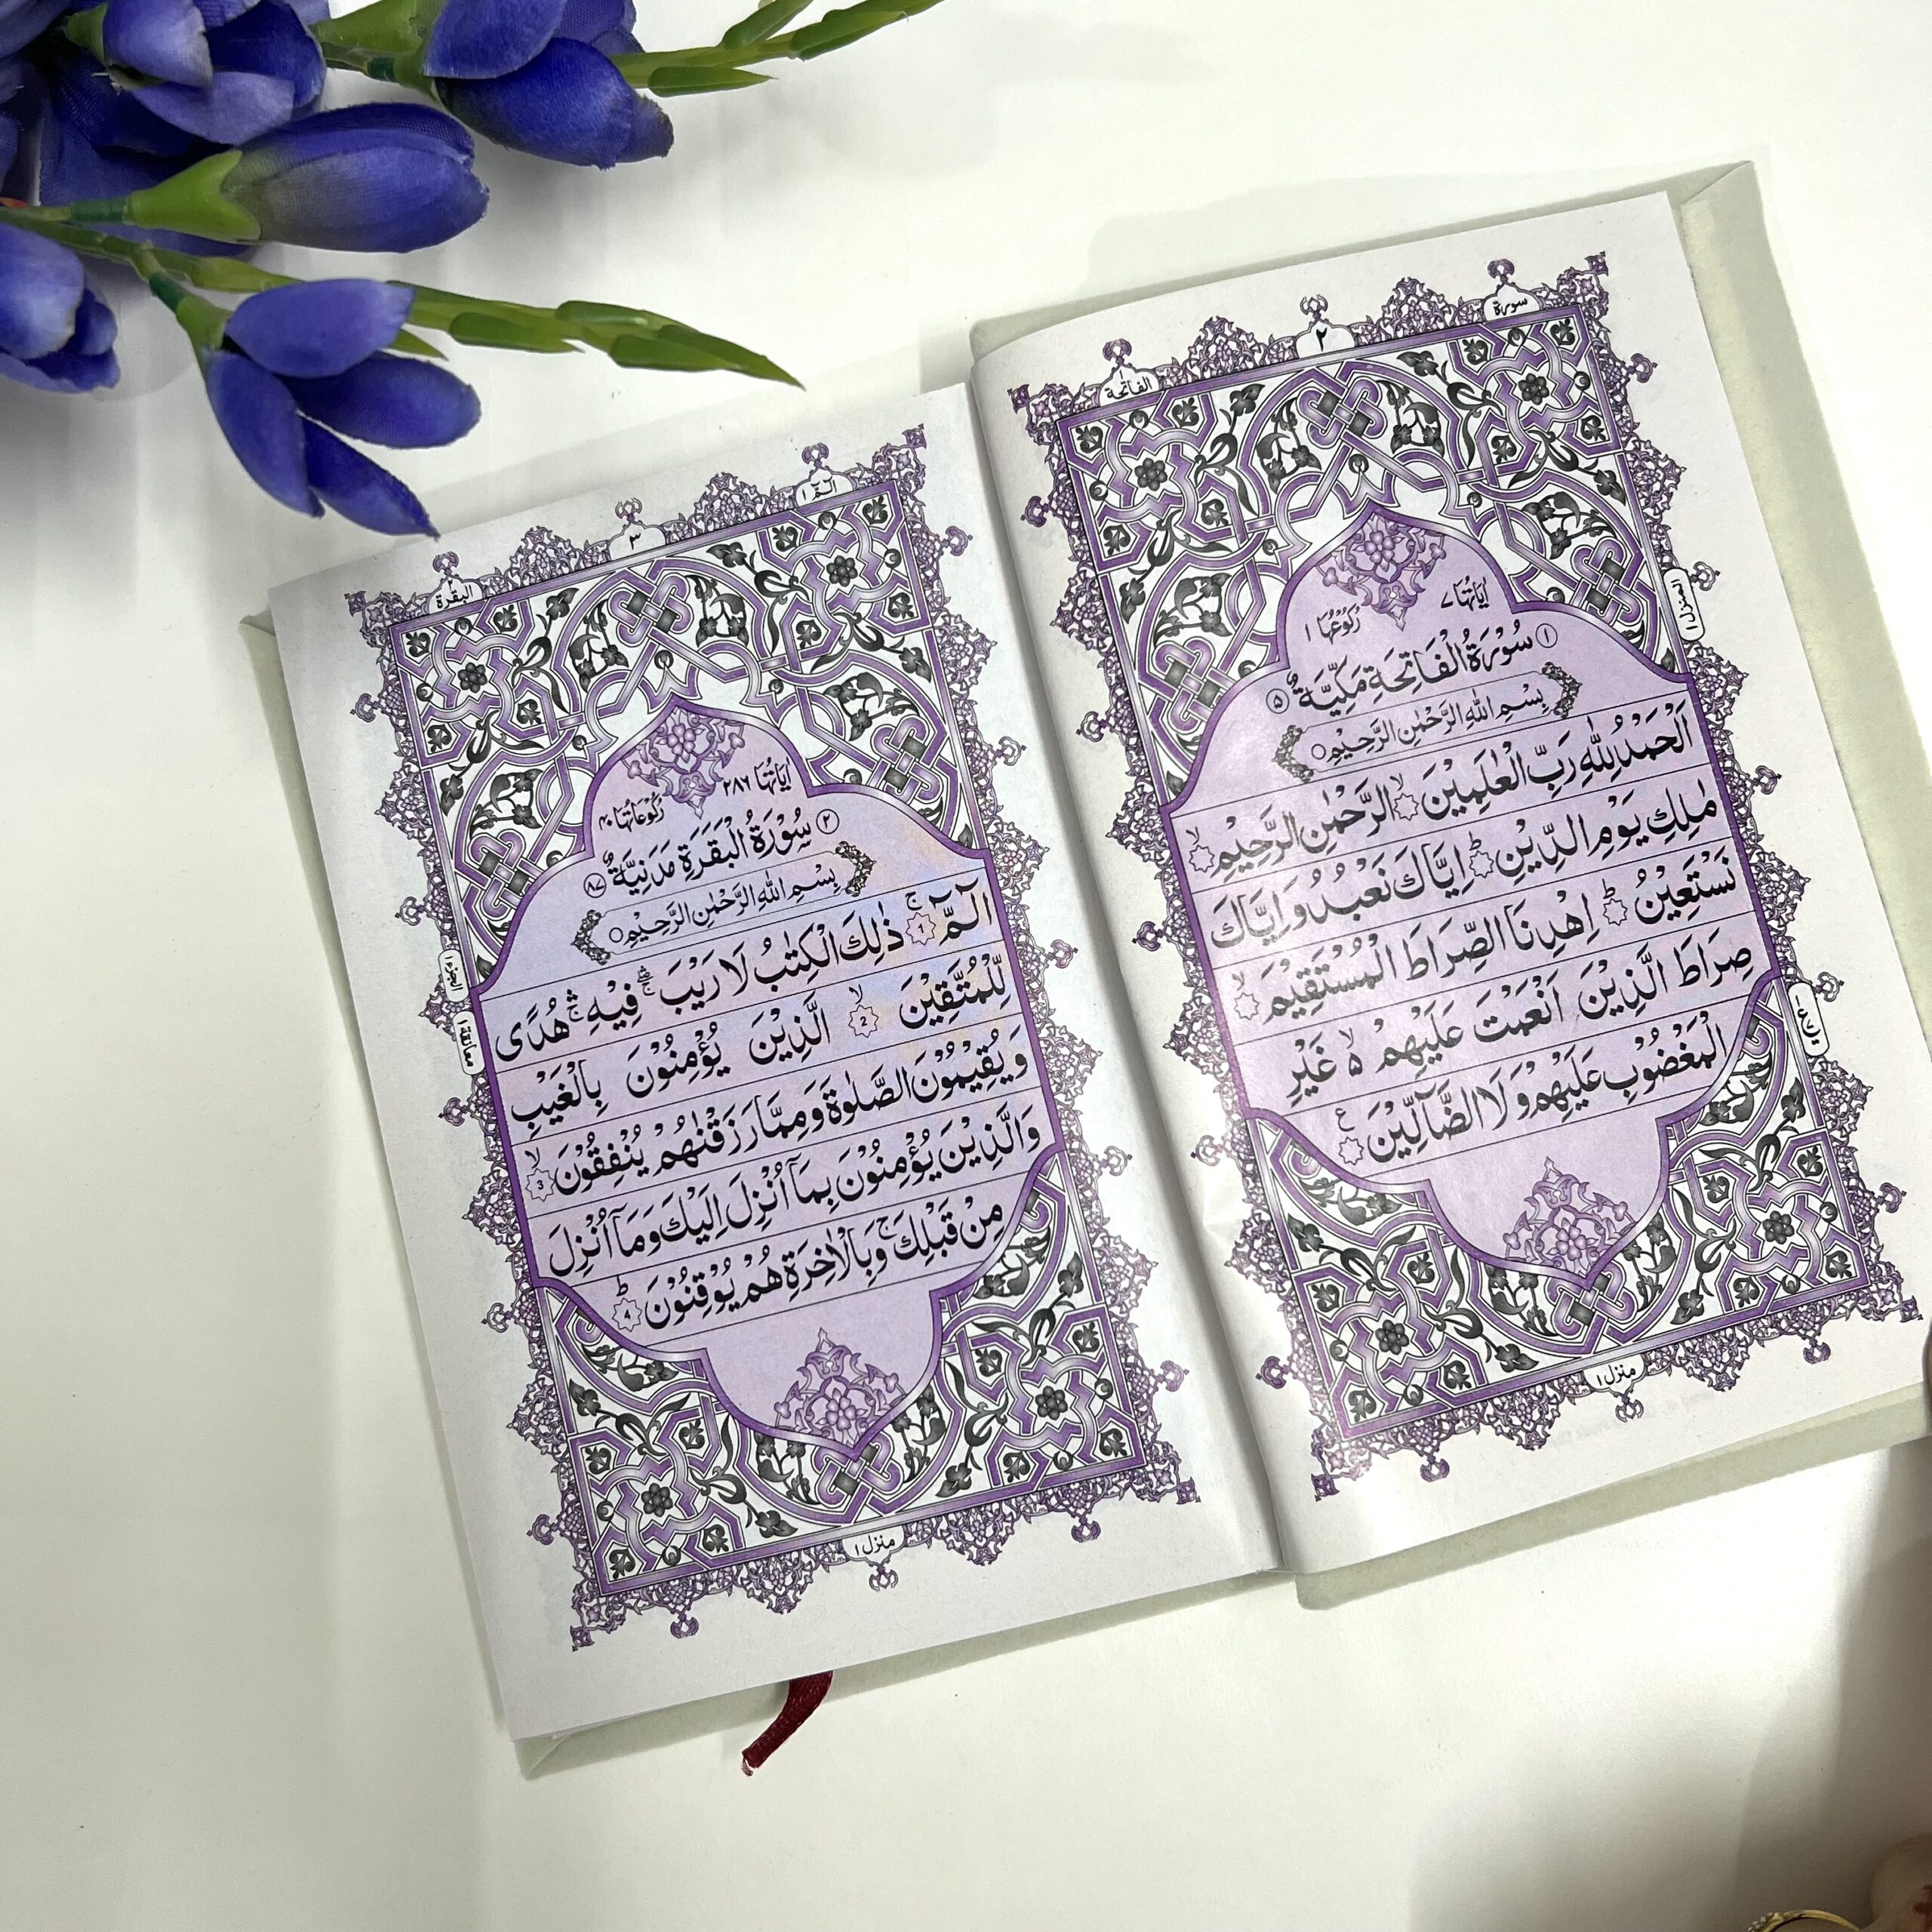 سورة
٢
الفاتحة
اٰيَاتُهَا ٧
رُكُوْعُهَا ١
١ سُوْرَةُ الْفَاتِحَةِ مَكِّيَّةٌ ٥
بِسْمِ اللّٰهِ الرَّحْمٰنِ الرَّحِيْمِ
اَلْحَمْدُ لِلّٰهِ رَبِّ الْعٰلَمِيْنَ ۙ الرَّحْمٰنِ الرَّحِيْمِ ۙ
مٰلِكِ يَوْمِ الدِّيْنِ ؕ اِيَّاكَ نَعْبُدُ وَ اِيَّاكَ
نَسْتَعِيْنُ ؕ اِهْدِنَا الصِّرَاطَ الْمُسْتَقِيْمَ ۙ
صِرَاطَ الَّذِيْنَ اَنْعَمْتَ عَلَيْهِمْ ۙ۵ غَيْرِ
الْمَغْضُوْبِ عَلَيْهِمْ وَ لَا الضَّآلِّيْنَ ع
المنزل ١
منزل ١
الٓمّٓ ١
٣
البقرة
اٰيَاتُهَا ٢٨٦
رُكُوْعَاتُهَا ٤٠
٢ سُوْرَةُ الْبَقَرَةِ مَدَنِيَّةٌ ٨٧
بِسْمِ اللّٰهِ الرَّحْمٰنِ الرَّحِيْمِ
الٓمّٓ ۚ 1 ذٰلِكَ الْكِتٰبُ لَا رَيْبَ ۛۖۚ فِيْهِ ۛۚ هُدًى
لِّلْمُتَّقِيْنَ ۙ 2 الَّذِيْنَ يُؤْمِنُوْنَ بِالْغَيْبِ
وَ يُقِيْمُوْنَ الصَّلٰوةَ وَ مِمَّا رَزَقْنٰهُمْ يُنْفِقُوْنَ ۙ 3
وَ الَّذِيْنَ يُؤْمِنُوْنَ بِمَاۤ اُنْزِلَ اِلَيْكَ وَ مَاۤ اُنْزِلَ
مِنْ قَبْلِكَ ۚ وَ بِالْاٰخِرَةِ هُمْ يُوْقِنُوْنَ ؕ 4
الجزء ١
معانقة ١
منزل ١